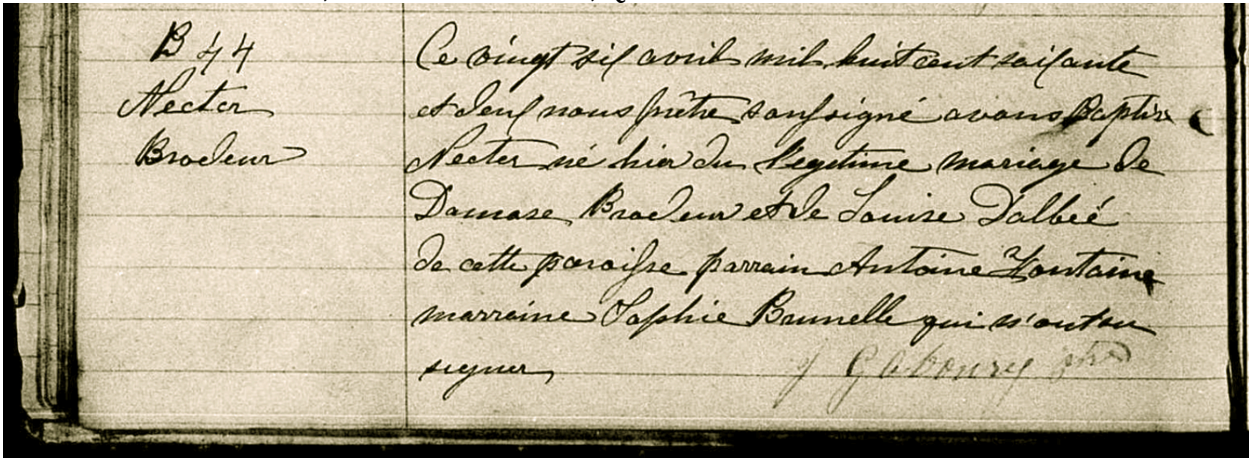 B 44
Nector
Brodeur
Ce vingt six avril mil huit cent soixante
et deux nous prêtre soussigné avons Baptisé
Nector né hier du légitime mariage de
Damase Brodeur et de Louise Dalbéé
de cette paroisse parrain Antoine Fontaine
marraine Sophie Brunelle qui n'ont su
signer
J Gaboury ptre